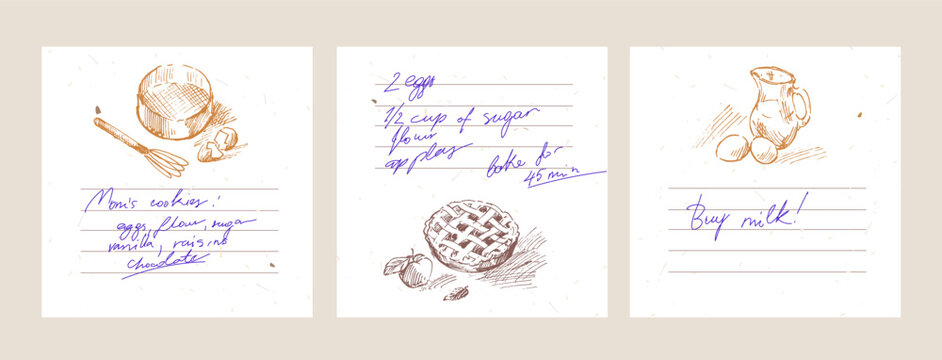 Mom's cookies:
eggs, flour, sugar
vanilla, raisins
chocolate
2 eggs
1/2 cup of sugar
flour
apples
bake for
45 min
Buy milk!